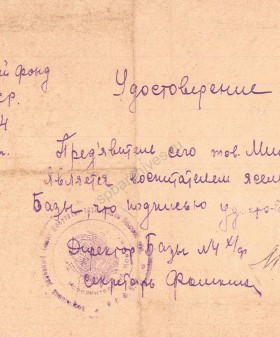 й фонд
Удостоверение
СР.
4
Пред'явитель сего тов. Ми
является воспитателем ясел
Базы что подписью удосто
Директор Базы №4 Х/ф
Секретарь